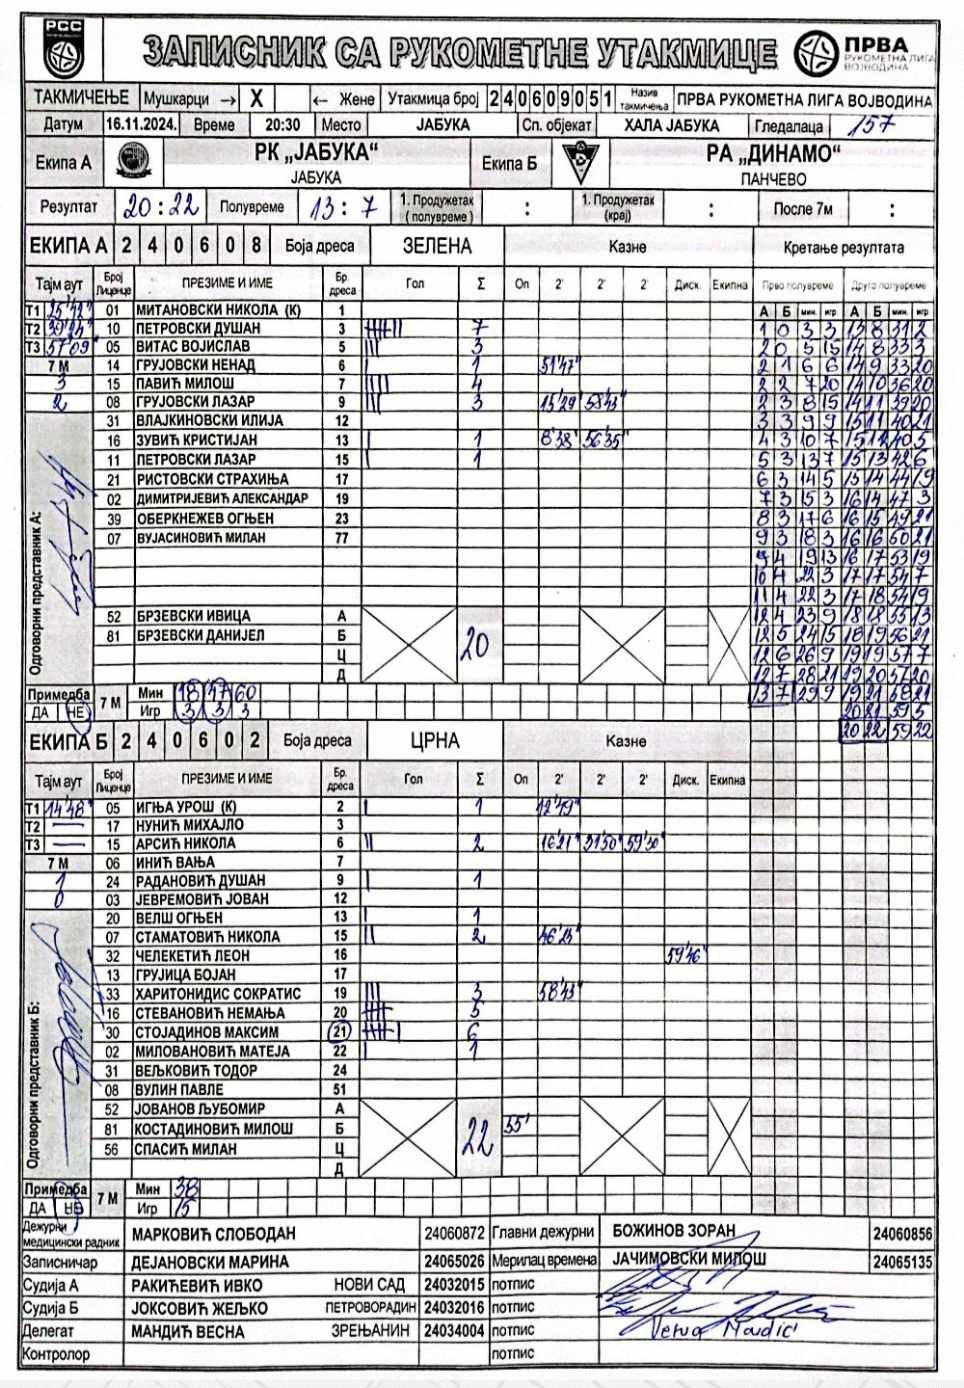 РСС
ЗАПИСНИК СА РУКОМЕТНЕ УТАКМИЦЕ
ПРВА РУКОМЕТНА ЛИГА ВОЈВОДИНА
ТАКМИЧЕЊЕ Мушкарци → X ← Жене Утакмица број 240609051 Назив такмичења ПРВА РУКОМЕТНА ЛИГА ВОЈВОДИНА
Датум 16.11.2024. Време 20:30 Место ЈАБУКА Сп. објекат ХАЛА ЈАБУКА Гледалаца 157
Екипа А РК „ЈАБУКА“ ЈАБУКА Екипа Б РА „ДИНАМО“ ПАНЧЕВО
Резултат 20:22 Полувреме 13:7 1. Продужетак (полувреме) : 1. Продужетак (крај) : После 7м :
ЕКИПА А 240608 Боја дреса ЗЕЛЕНА Казне Кретање резултата
Тајм аут Број Лиценце ПРЕЗИМЕ И ИМЕ Бр. дреса Гол Σ Оп 2' 2' 2' Диск. Екипна Прво полувреме Друго полувреме
А Б мин. игр А Б мин. игр
Т1 01 МИТАНОВСКИ НИКОЛА (К) 1
Т2 10 ПЕТРОВСКИ ДУШАН 3 7
Т3 57'09 05 ВИТАС ВОЈИСЛАВ 5 3
7 М 14 ГРУЈОВСКИ НЕНАД 6 1 51'47"
3 15 ПАВИЋ МИЛОШ 7 4
2 08 ГРУЈОВСКИ ЛАЗАР 9 3 15'29" 58'43"
31 ВЛАЈКИНОВСКИ ИЛИЈА 12
16 ЗУВИЋ КРИСТИЈАН 13 1 8'38" 56'35"
11 ПЕТРОВСКИ ЛАЗАР 15 1
21 РИСТОВСКИ СТРАХИЊА 17
02 ДИМИТРИЈЕВИЋ АЛЕКСАНДАР 19
39 ОБЕРКНЕЖЕВ ОГЊЕН 23
07 ВУЈАСИНОВИЋ МИЛАН 77
Одговорни представник А:
52 БРЗЕВСКИ ИВИЦА А
81 БРЗЕВСКИ ДАНИЈЕЛ Б
20
Ц
Д
1 0 3 3 13 8 31 2
2 0 5 15 14 8 33 3
2 1 6 6 14 9 33 20
2 2 7 20 14 10 36 20
2 3 8 15 14 11 39 20
3 3 9 9 15 11 40 21
4 3 10 7 15 12 40 5
5 3 13 7 15 13 42 6
6 3 14 5 15 14 44 19
7 3 15 3 16 14 47 3
8 3 17 6 16 15 49 21
9 3 18 3 16 16 50 21
9 4 19 13 16 17 53 19
10 4 22 3 17 17 54 7
11 4 22 3 17 18 54 19
12 4 23 9 18 18 55 13
12 5 24 15 18 19 56 21
12 6 26 9 19 19 57 7
12 7 28 21 19 20 57 20
13 7 29 9 19 21 58 21
20 21 59 5
20 22 59 22
Примедба ДА НЕ 7 М Мин 18 47 60
Игр 3 3 3
ЕКИПА Б 240602 Боја дреса ЦРНА Казне
Тајм аут Број Лиценце ПРЕЗИМЕ И ИМЕ Бр. дреса Гол Σ Оп 2' 2' 2' Диск. Екипна
Т1 14'48" 05 ИГЊА УРОШ (К) 2 1 12'49"
Т2 — 17 НУНИЋ МИХАЈЛО 3
Т3 — 15 АРСИЋ НИКОЛА 6 2 16'21" 31'50" 59'30"
7 М 06 ИНИЋ ВАЊА 7
1 24 РАДАНОВИЋ ДУШАН 9 1
0 03 ЈЕВРЕМОВИЋ ЈОВАН 12
20 ВЕЛШ ОГЊЕН 13 1
07 СТАМАТОВИЋ НИКОЛА 15 2 46'23"
32 ЧЕЛЕКЕТИЋ ЛЕОН 16 59'46"
13 ГРУЈИЦА БОЈАН 17
33 ХАРИТОНИДИС СОКРАТИС 19 3 58'43"
16 СТЕВАНОВИЋ НЕМАЊА 20 5
30 СТОЈАДИНОВ МАКСИМ 21 6
02 МИЛОВАНОВИЋ МАТЕЈА 22 1
31 ВЕЉКОВИЋ ТОДОР 24
08 ВУЛИН ПАВЛЕ 51
Одговорни представник Б:
52 ЈОВАНОВ ЉУБОМИР А
81 КОСТАДИНОВИЋ МИЛОШ Б 55'
56 СПАСИЋ МИЛАН Ц
22
Д
Примедба ДА НЕ 7 М Мин 38
Игр 15
Дежурни медицински радник МАРКОВИЋ СЛОБОДАН 24060872 Главни дежурни БОЖИНОВ ЗОРАН 24060856
Записничар ДЕЈАНОВСКИ МАРИНА 24065026 Мерилац времена ЈАЧИМОВСКИ МИЛОШ 24065135
Судија А РАКИЋЕВИЋ ИВКО НОВИ САД 24032015 потпис
Судија Б ЈОКСОВИЋ ЖЕЉКО ПЕТРОВОРАДИН 24032016 потпис
Делегат МАНДИЋ ВЕСНА ЗРЕЊАНИН 24034004 потпис Vesna Mandić
Контролор потпис